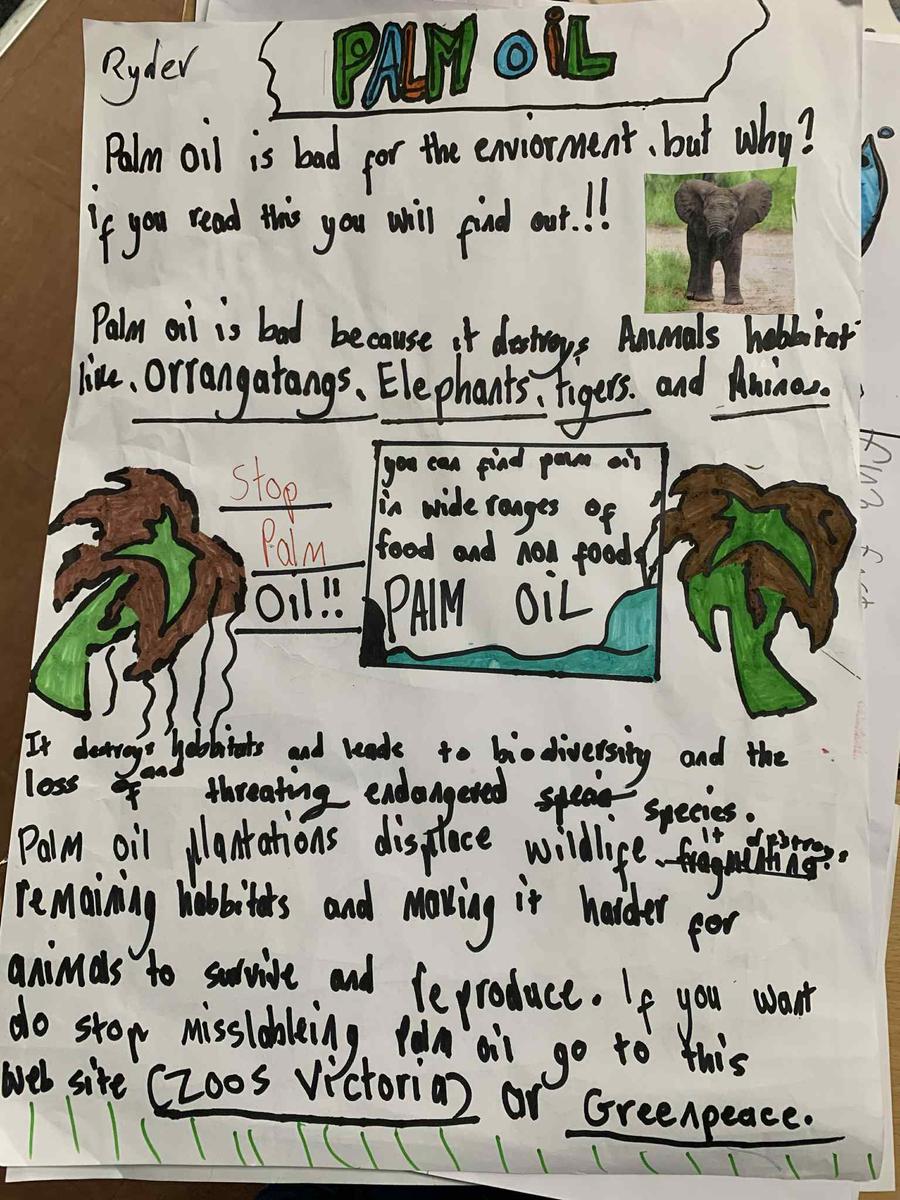 Ryder
PALM OIL
Palm oil is bad for the enviorment, but why?
if you read this you will find out.!!
Palm oil is bad because it destroys Animals habbitat
like, Orrangatangs, Elephants, tigers. and
you can find palm oil
in wide ranges of
food and non foods
PAlM OIL
Stop
Palm
Oil!!
It destroys habbitats and leads to biodiversity and the
loss of and threating endangered species.
Palm oil plantations displace wildlife it destroys
remaining habbitats and making it harder for
animals to survive and reproduce. If you want
do stop misslableing Palm oil go to this
web site (Zoos Victoria) or Greenpeace.